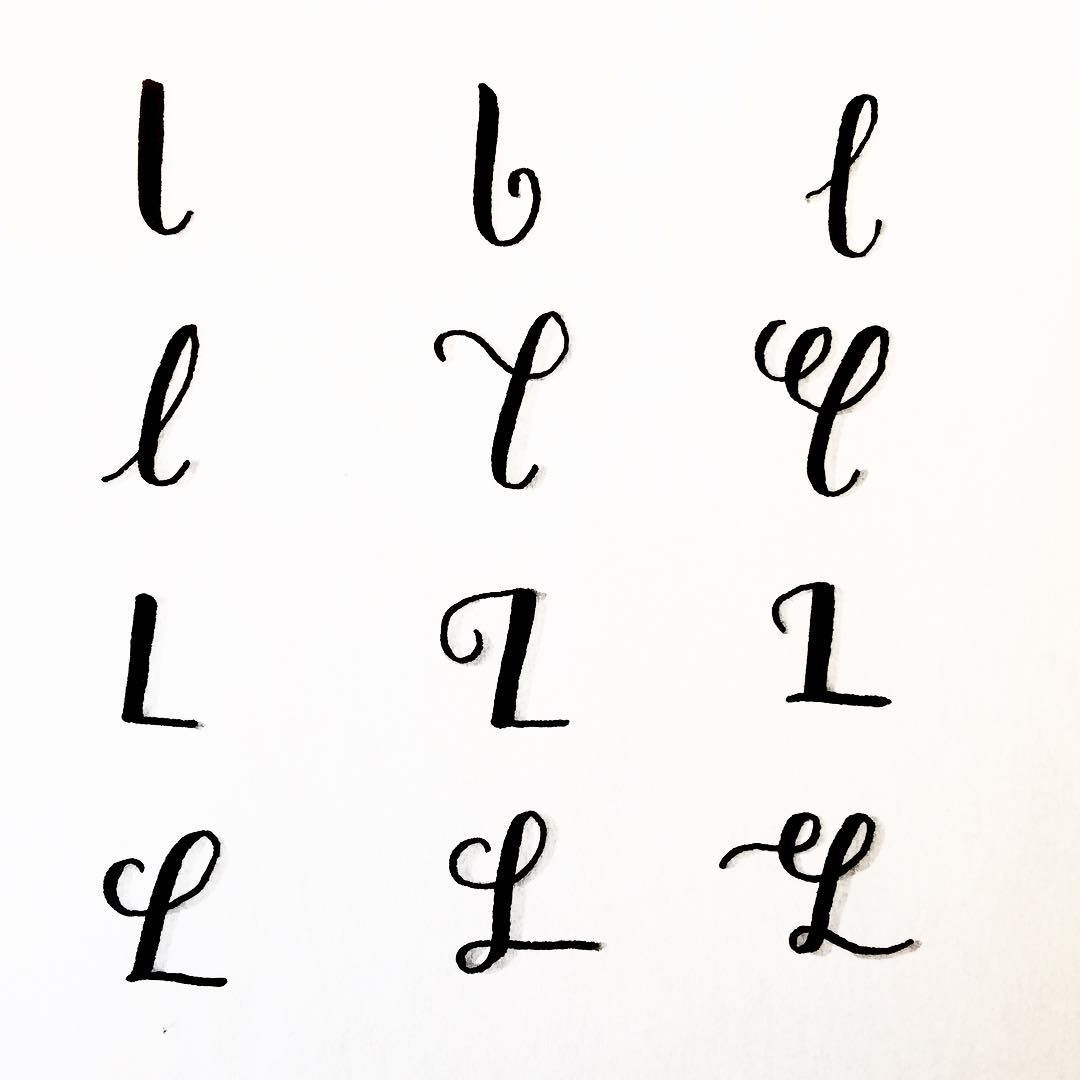 l l l
l l l
L L L
L L L